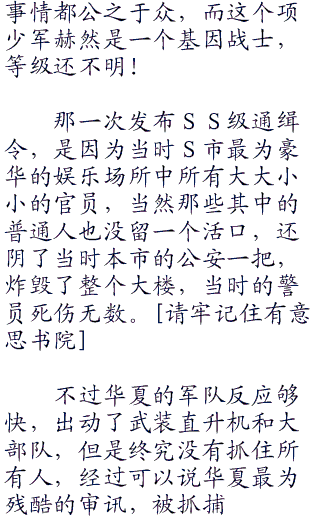 事情都公之于众，而这个项
少军赫然是一个基因战士，
等级还不明！
那一次发布ＳＳ级通缉
令，是因为当时Ｓ市最为豪
华的娱乐场所中所有大大小
小的官员，当然那些其中的
普通人也没留一个活口，还
阴了当时本市的公安一把，
炸毁了整个大楼，当时的警
员死伤无数。[请牢记住有意
思书院]
不过华夏的军队反应够
快，出动了武装直升机和大
部队，但是终究没有抓住所
有人，经过可以说华夏最为
残酷的审讯，被抓捕